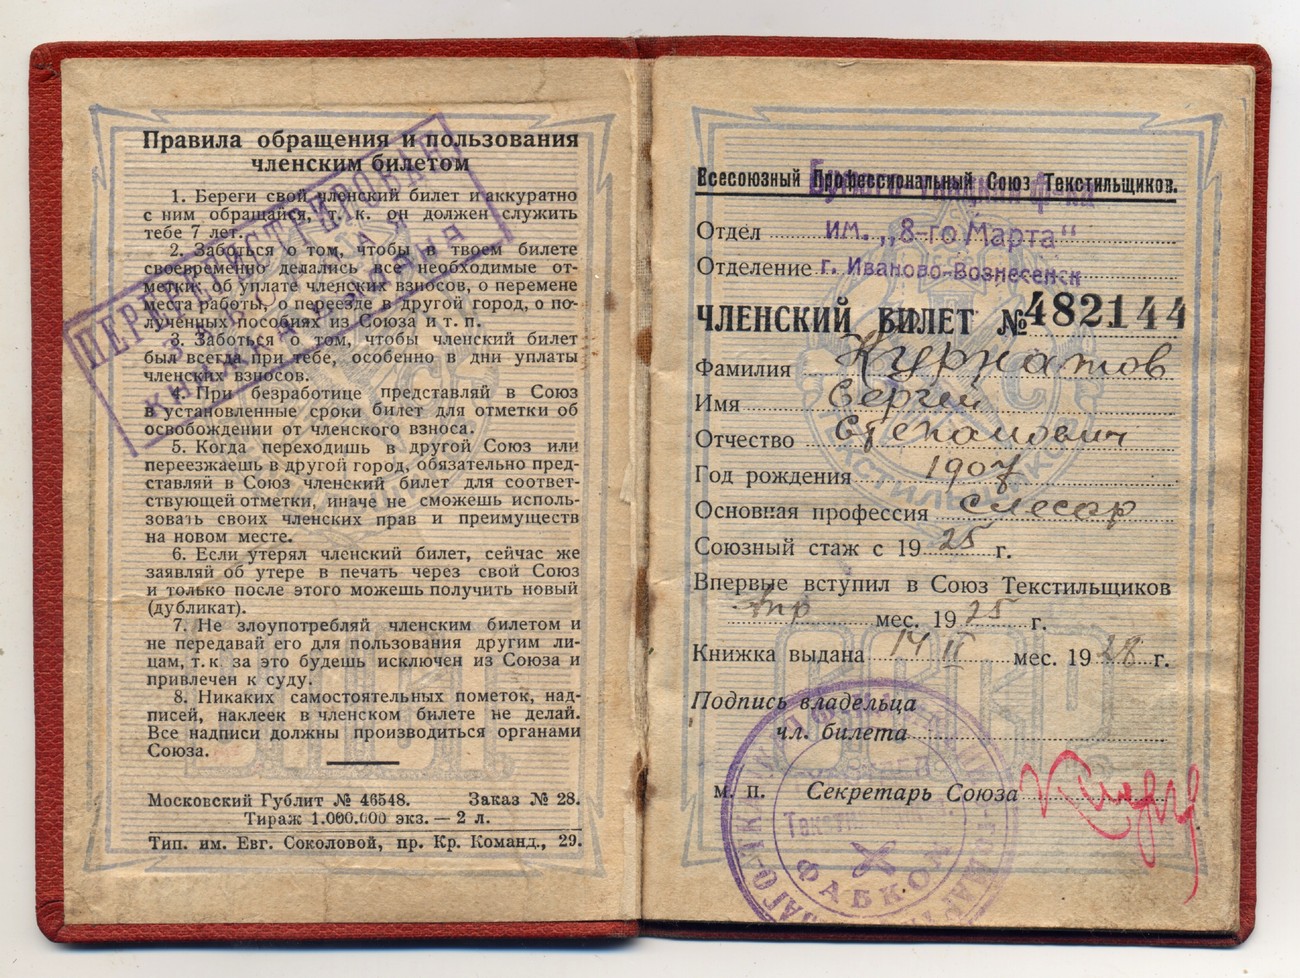 Правила обращения и пользования
членским билетом
1. Береги свой членский билет и аккуратно
с ним обращайся, т. к. он должен служить
тебе 7 лет.
2. Заботься о том, чтобы в твоем билете
своевременно делались все необходимые от-
метки: об уплате членских взносов, о перемене
места работы, о переезде в другой город, о по-
лученных пособиях из Союза и т. п.
3. Заботься о том, чтобы членский билет
был всегда при тебе, особенно в дни уплаты
членских взносов.
4. При безработице представляй в Союз
в установленные сроки билет для отметки об
освобождении от членского взноса.
5. Когда переходишь в другой Союз или
переезжаешь в другой город, обязательно пред-
ставляй в Союз членский билет для соответ-
ствующей отметки, иначе не сможешь исполь-
зовать своих членских прав и преимуществ
на новом месте.
6. Если утерял членский билет, сейчас же
заявляй об утере в печать через свой Союз
и только после этого можешь получить новый
(дубликат).
7. Не злоупотребляй членским билетом и
не передавай его для пользования другим ли-
цам, т. к. за это будешь исключен из Союза и
привлечен к суду.
8. Никаких самостоятельных пометок, над-
писей, наклеек в членском билете не делай.
Все надписи должны производиться органами
Союза.
Московский Гублит № 46548. Заказ № 28.
Тираж 1.000.000 экз. — 2 л.
Тип. им. Евг. Соколовой, пр. Кр. Команд., 29.
Всесоюзный Профессиональный Союз Текстильщиков.
Отдел им. „8-го Марта“
Отделение г. Иваново-Вознесенск
ЧЛЕНСКИЙ БИЛЕТ № 482144
Фамилия Курнатов
Имя Сергий
Отчество Степанович
Год рождения 1907
Основная профессия слесар
Союзный стаж с 1925 г.
Впервые вступил в Союз Текстильщиков
Апр мес. 1925 г.
Книжка выдана 14 II мес. 1928 г.
Подпись владельца
чл. билета
м. п. Секретарь Союза
ФАБКОМ